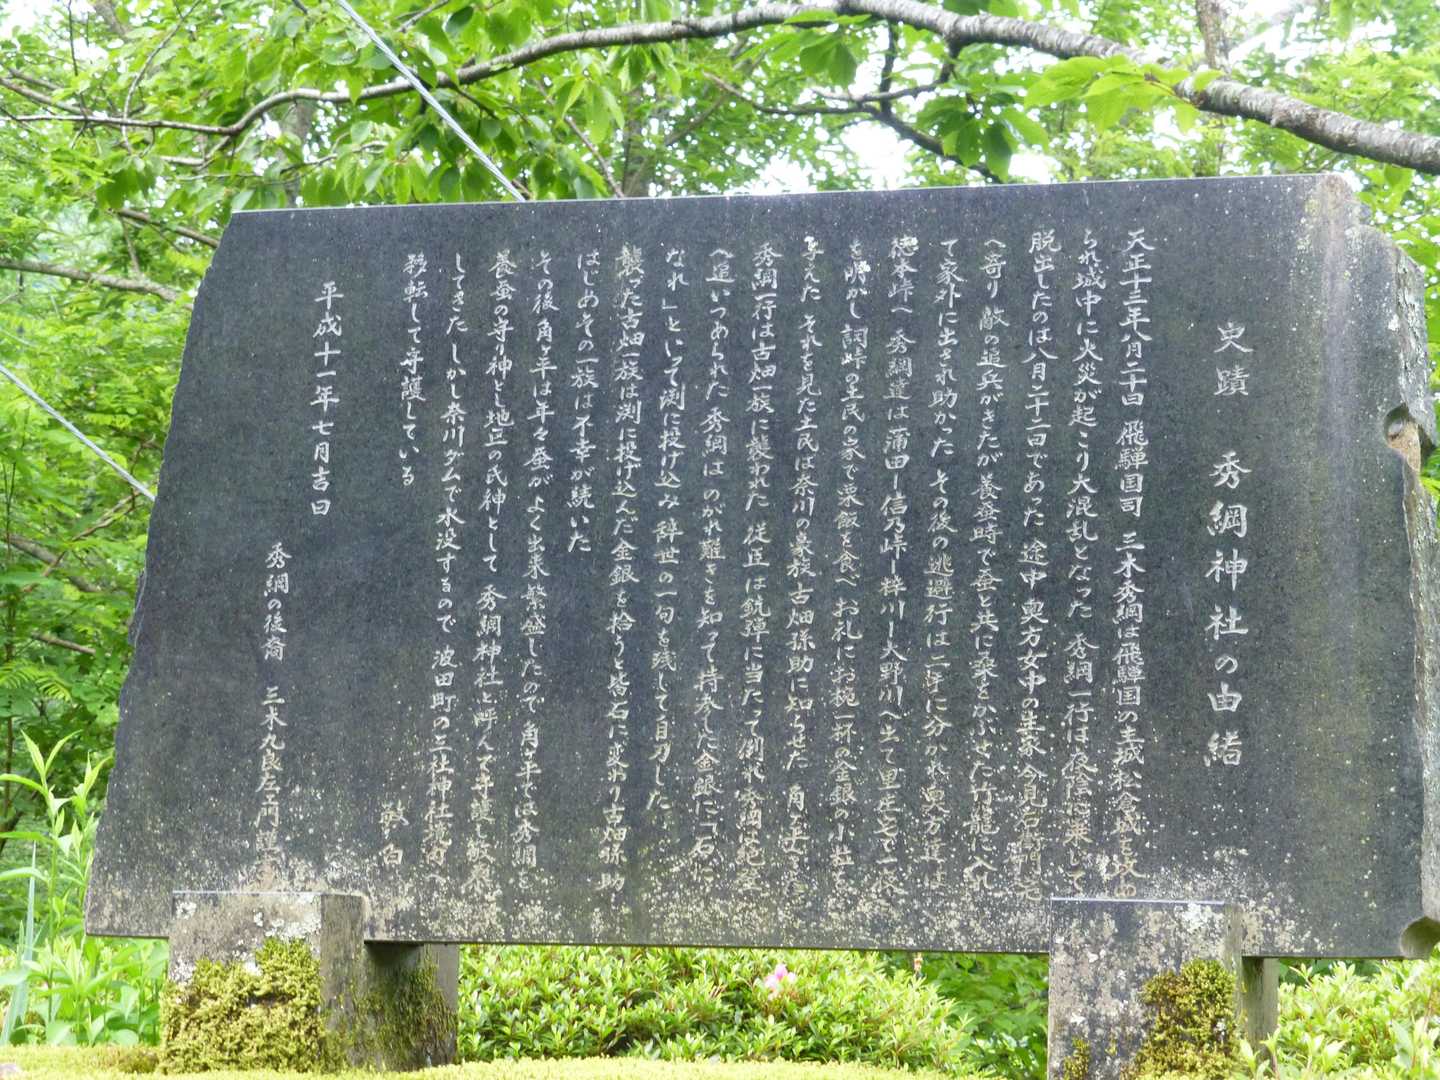 史蹟 秀綱神社の由緒
天正十三年八月二十四日 飛騨国司 三木秀綱は飛騨国の主城松倉城を攻め
られ城中に火災が起こり大混乱となった 秀綱一行は夜陰に乗じて
脱出したのは八月二十二日であった 途中奥方女中の生家今見右衛門宅
へ寄り敵の追兵がきたが養蚕時で蚕と共に桑をかぶせた竹籠に入れ
て家外に出され助かった その後の逃避行は二手に分かれ奥方達は
徳本峠へ 秀綱達は蒲田ー信乃峠ー粹川ー大野川へ出て里庄宅で一夜
を明かし 祠峠の土民の家で粟飯を食べお礼にお椀一杯の金銀の小粒を
与えた それを見た土民は奈川の豪族古畑孫助に知らせた 角ヶ平で
秀綱一行は古畑一族に襲われた 従臣は銃弾に当たって倒れ 秀綱は絶壁
へ追いつめられた 秀綱は のがれ難きを知って持参した金銀に「石に
なれ」といって渕に投げ込み 辞世の一句を残して自刃した
襲った古畑一族は渕に投げ込んだ金銀を拾うと皆石に変わり古畑孫助
はじめその一族は不幸が続いた
その後角ヶ平は年々蚕がよく出来繁盛したので 角ヶ平では秀綱を
養蚕の守り神とし地区の氏神として 秀綱神社と呼んで守護し敬愛
してきた しかし奈川ダムで水没するので 波田町の三社神社境内へ
移転して守護している
敬白
平成十一年七月吉日
秀綱の後裔 三木九良左ヱ門